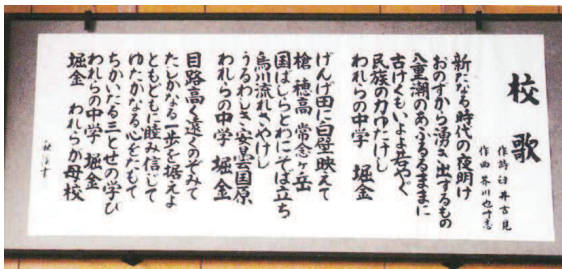 校歌
作詩 臼井吉見
作曲 芥川也寸志
新たなる時代の夜明け
おのずから湧き出ずるもの
八重潮のあふるるままに
古けくもいよよ若やぐ
民族の力ゆたけし
われらの中学 堀金
げんげ田に白壁映えて
槍 穂高 常念ヶ岳
国ばしらとわにそば立ち
烏川流れさやけし
うるわしき安曇国原
われらの中学 堀金
目路高く遠くのぞみて
たしかなる一歩を据えよ
ともどもに睦み信じて
ゆたかなる心をたもて
ちかいたる三とせの学び
われらの中学 堀金
堀金 われらが母校